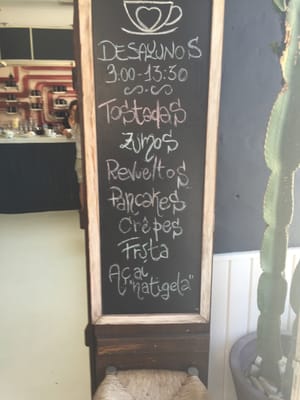 DESAYUNOS
9:00-13:30
Tostadas
Zumos
Revueltos
Pancakes
Crêpes
Fruta
Açai
"natigela"